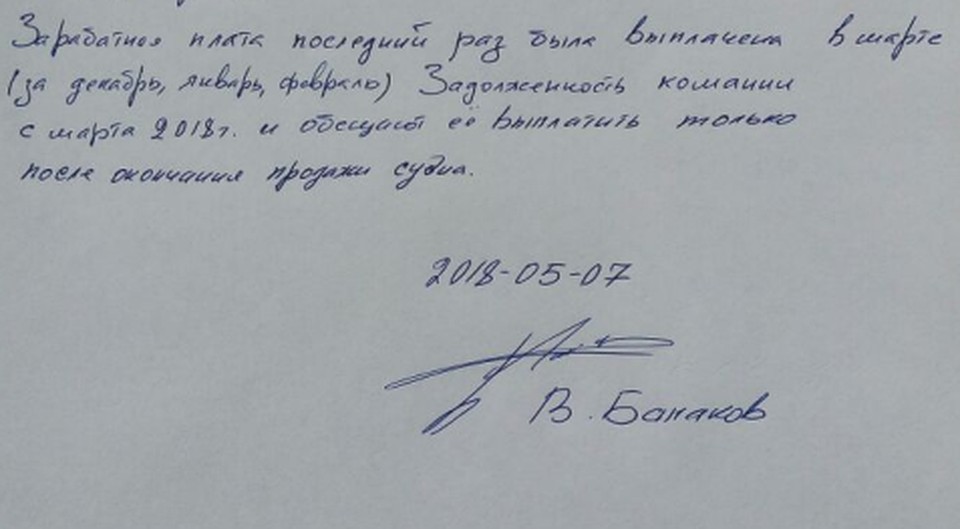 Заработная плата последний раз была выплачена в марте
(за декабрь, январь, февраль) Задолженность компании
с марта 2018г. и обещают её выплатить только
после окончания продажи судна.
2018-05-07
В. Банаков